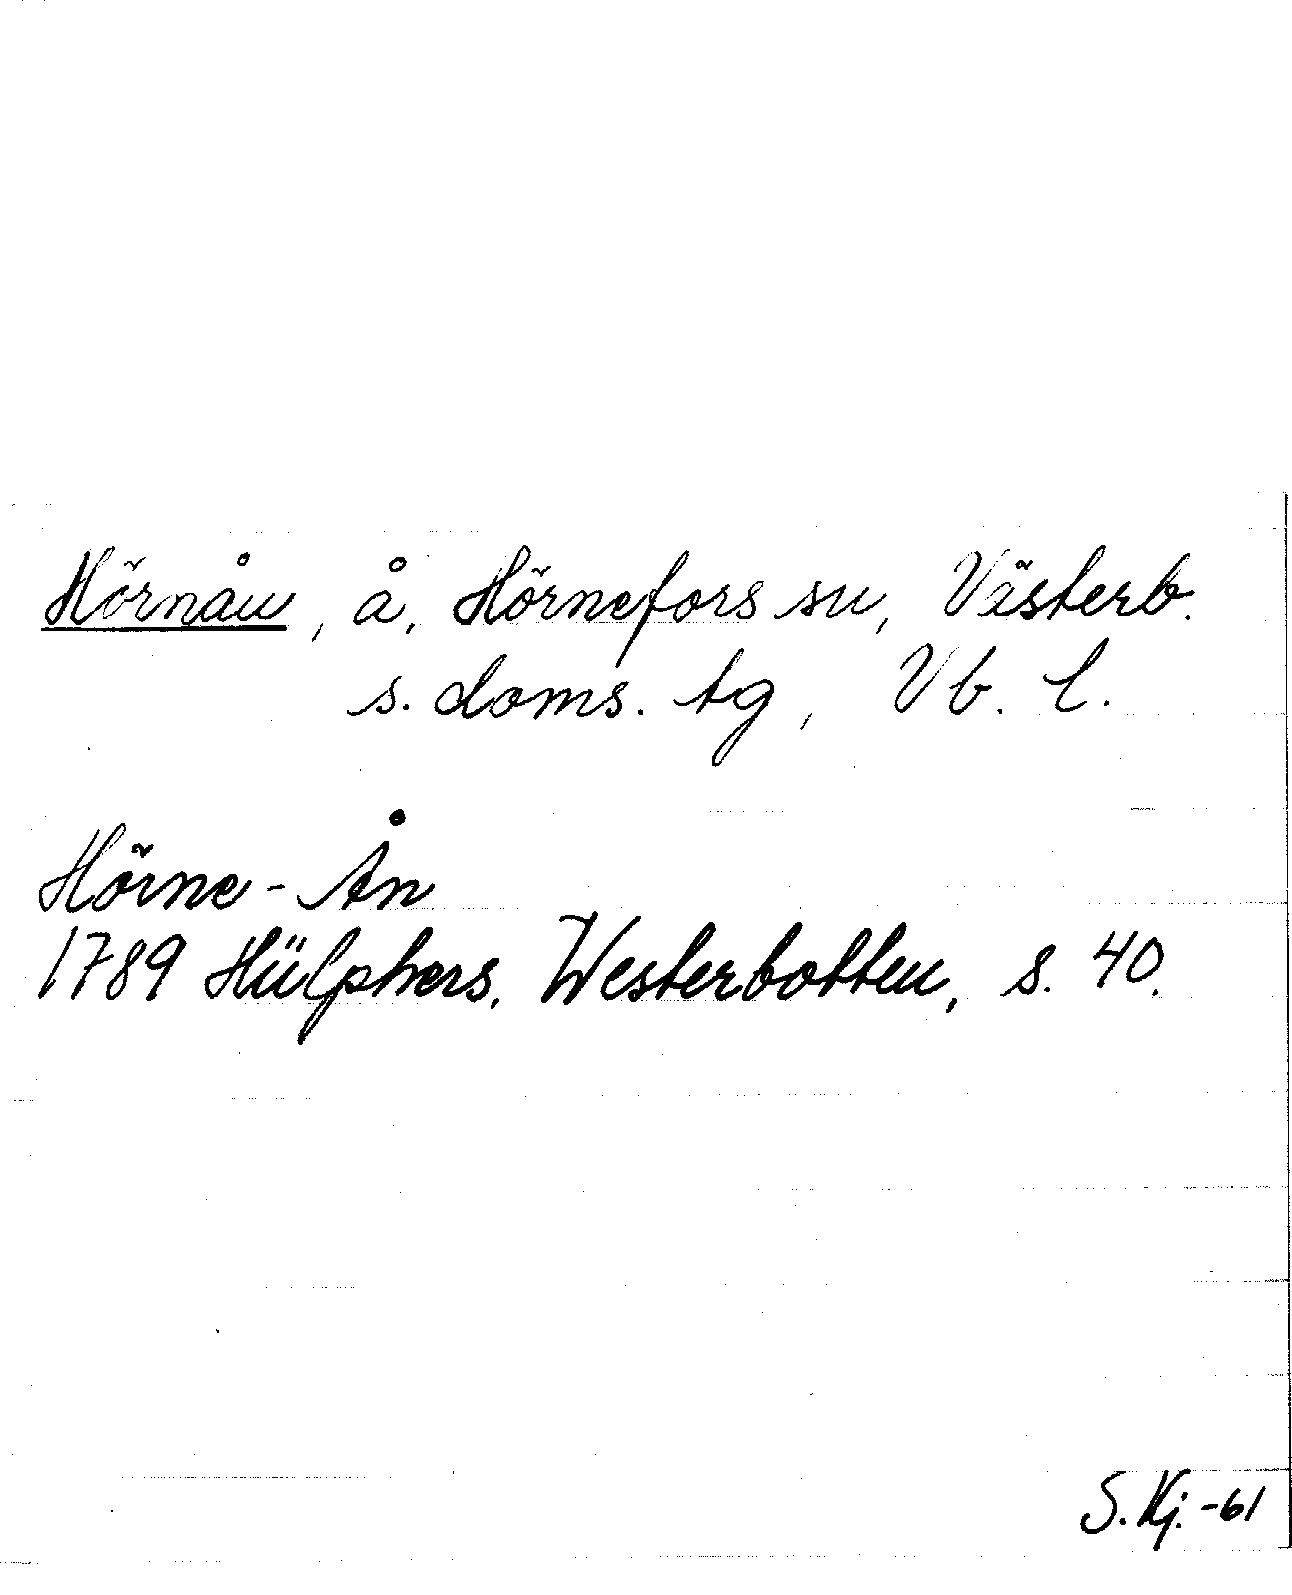 Hörnån, å, Hörnefors sn, Västerb.
s. doms. tg, Vb. l.
Hörne-Ån
1789 Hülphers, Westerbotten, s. 40.
S. Kj. -61